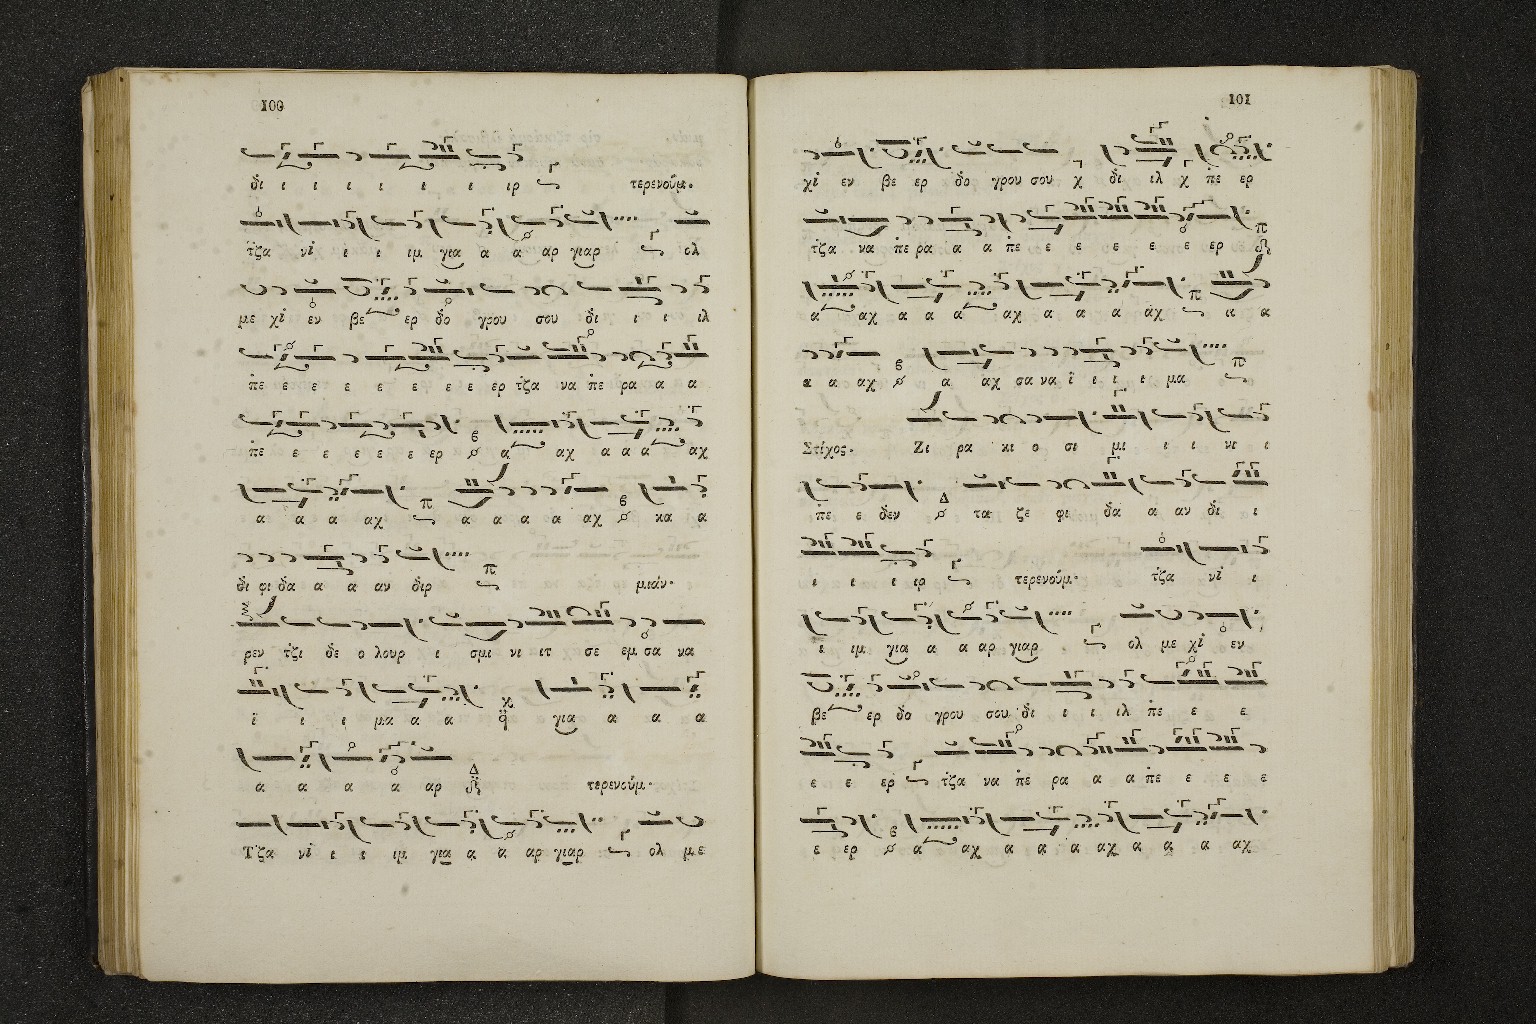 100
δι ι ι ι ι ι ι ιρ τερενούμ.
τζα νi ι ι ιμ για α α αρ γιαρ ολ
με χi εν βε ερ δο γρου σου δι ι ι ιλ
πε ε ε ε ε ε ε ε ερ τζα να πε ρα α α
πε ε ε ε ε ε ερ α αχ α α α αχ
α α α αχ α α α α αχ κα α
δι φι δα α α αν διρ μιάν.
ρεν τζι δε ο λουρ ι σμι νι ιτ σε εμ σα να
ϊ ι ι μα α α για α α α
α α α α αρ τερενούμ.
Τζα νi ι ι ιμ για α α αρ γιαρ ολ με
101
χi εν βε ερ δο γρου σου χ δι ιλ χ πε ερ
τζα να πε ρα α α πε ε ε ε ε ε ερ
α αχ α α α αχ α α α αχ κ α
α α αχ α αχ σα να ϊ ι ι ι μα
Στίχος. Ζι ρα κι ο σι μι ι ι νι ι
πε ε δεν τα ζε φι δα α αν δι ι
ι ι ι ιρ τερενούμ. τζα νi ι
ι ιμ για α α αρ γιαρ ολ με χi εν
βε ερ δο γρου σου δι ι ι ιλ πε ε ε
ε ε ερ τζα να πε ρα α α πε ε ε ε
ε ερ α αχ α α α αχ α α α αχ